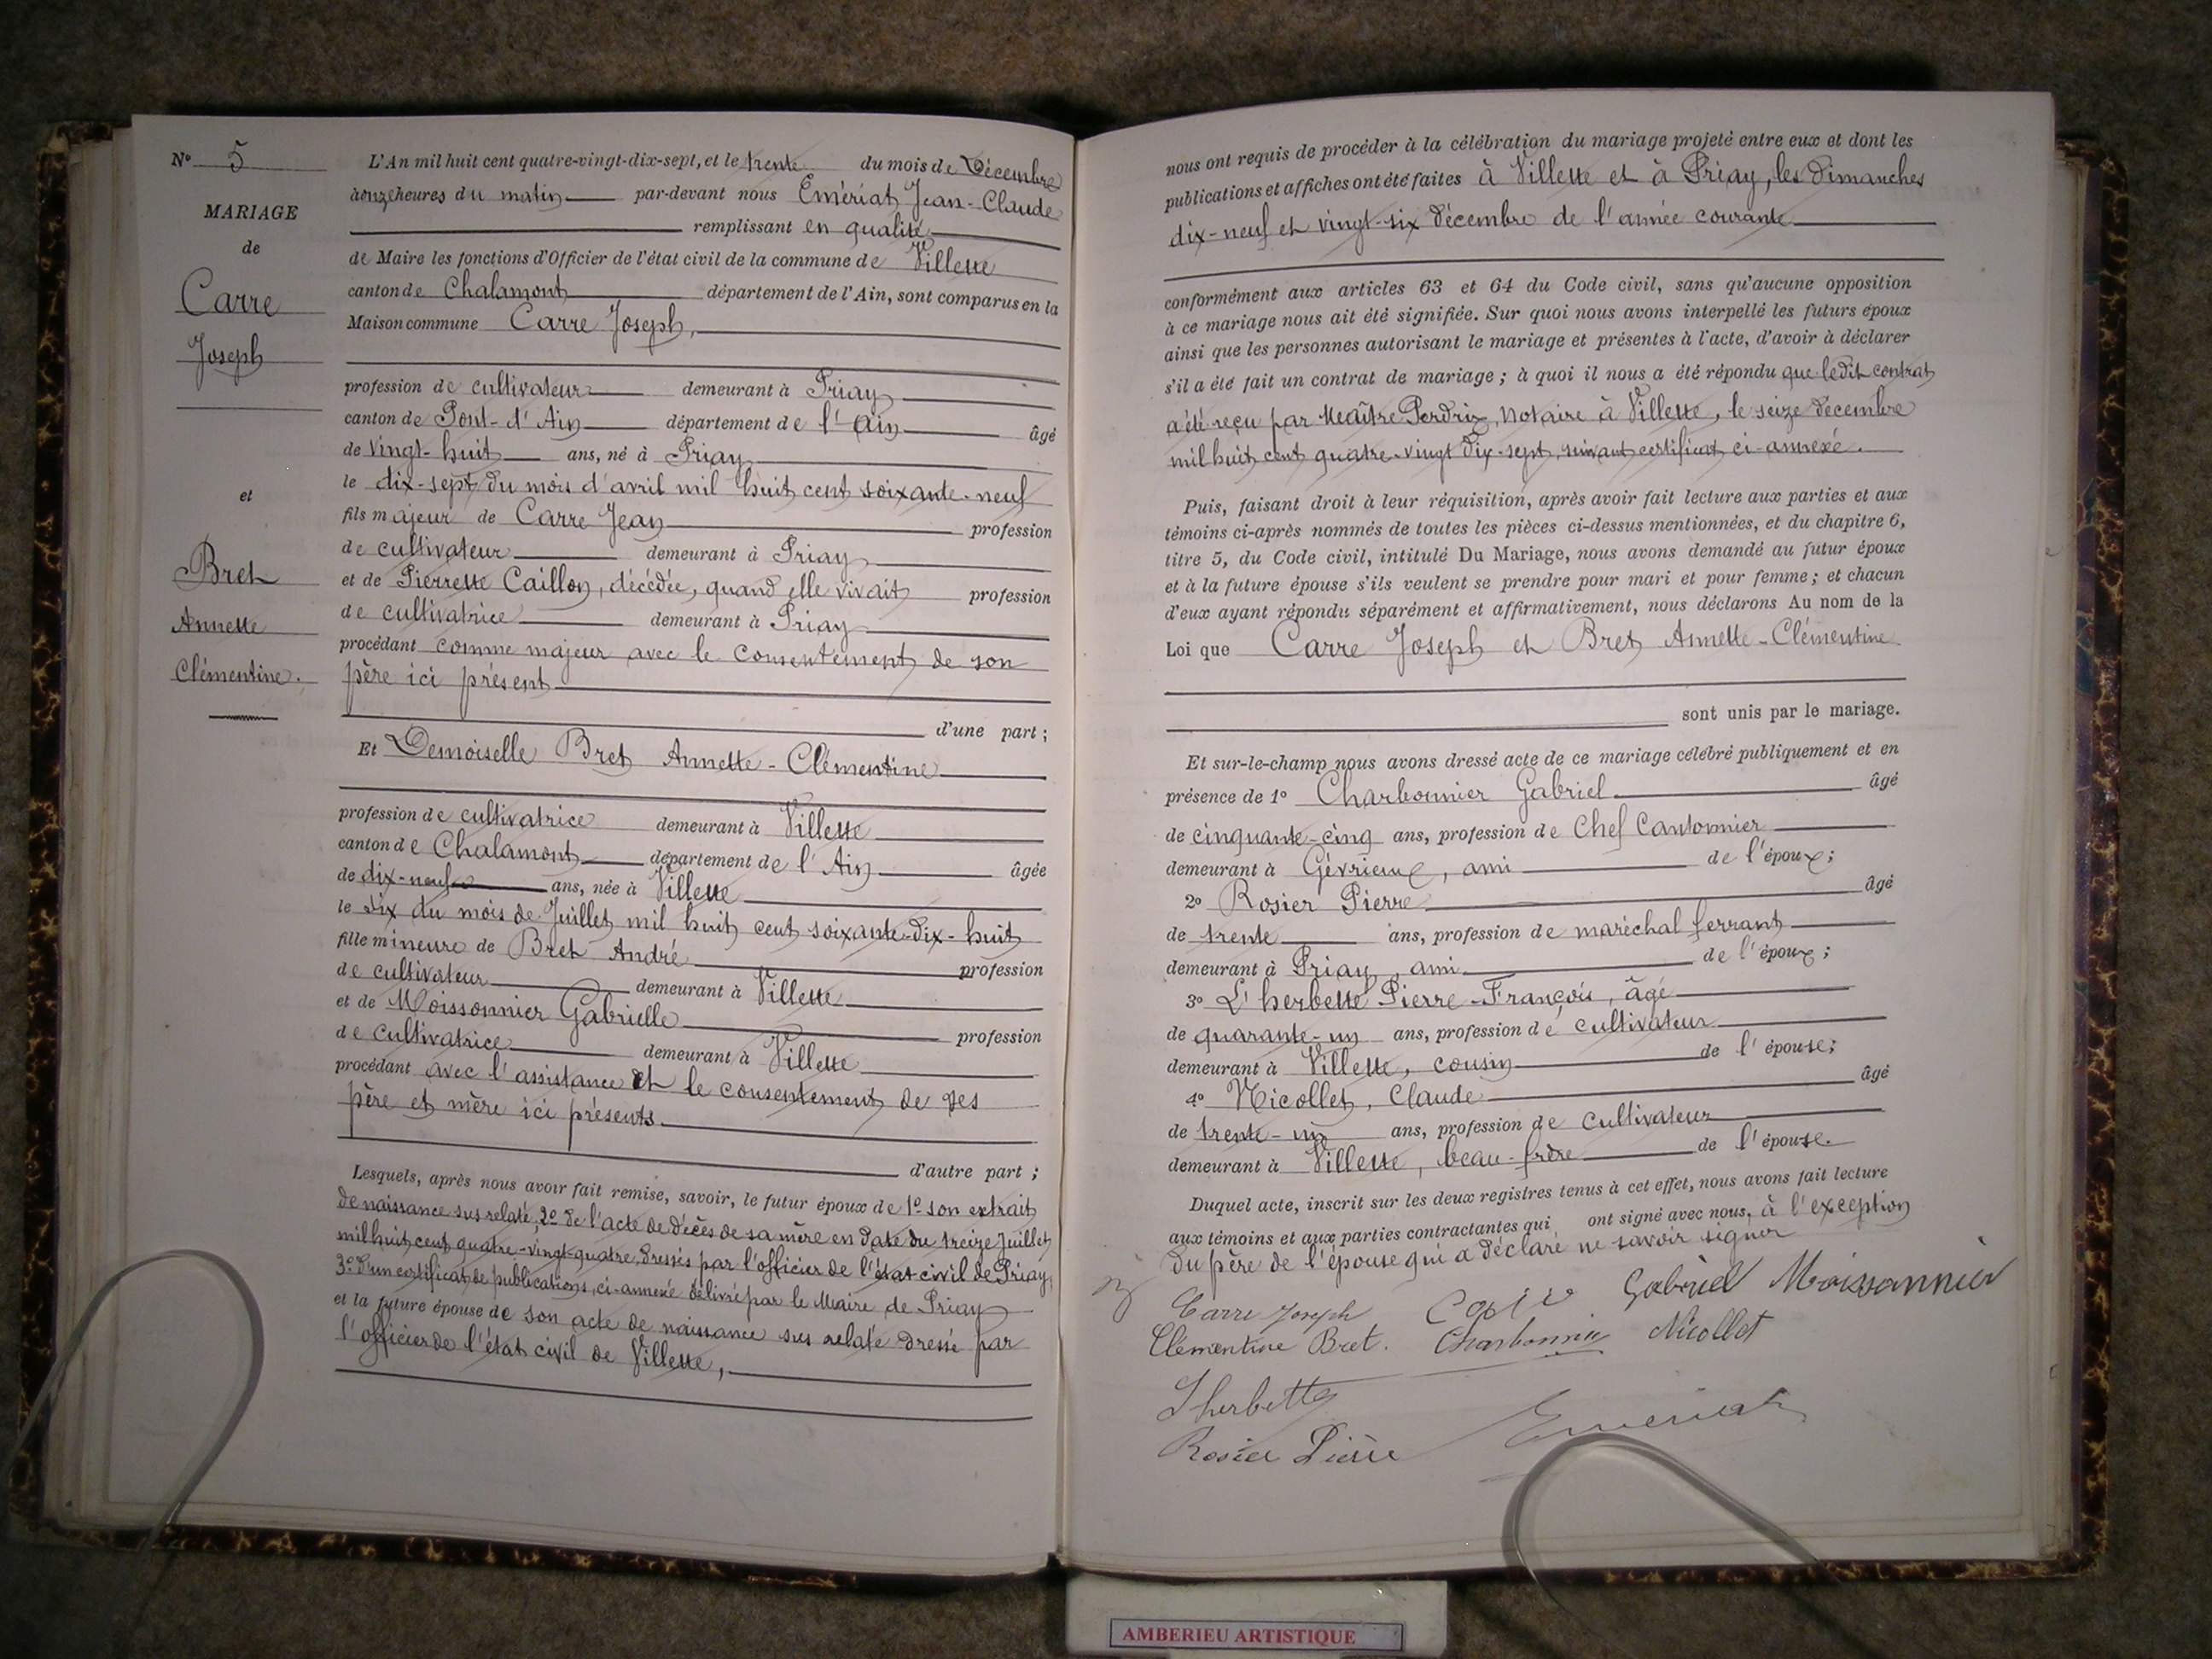 N° 5
MARIAGE
de
Carre
Joseph
et
Bret
Annette
Clémentine.
L'An mil huit cent quatre-vingt-dix-sept, et le trente du mois de Décembre
à onze heures du matin par-devant nous Emériat Jean-Claude
remplissant en qualité
de Maire les fonctions d'Officier de l'état civil de la commune de Villette
canton de Chalamont département de l'Ain, sont comparus en la
Maison commune Carre Joseph,
profession de cultivateur demeurant à Priay
canton de Pont-d'Ain département de l'Ain âgé
de vingt-huit ans, né à Priay
le dix-sept du mois d'avril mil huit cent soixante-neuf
fils majeur de Carre Jean profession
de cultivateur demeurant à Priay
et de Pierrette Caillon, décédée, quand elle vivait profession
de cultivatrice demeurant à Priay
procédant comme majeur avec le consentement de son
père ici présent
d'une part ;
Et Demoiselle Bret Annette-Clémentine
profession de cultivatrice demeurant à Villette
canton de Chalamont département de l'Ain âgée
de dix-neuf ans, née à Villette
le dix du mois de Juillet mil huit cent soixante-dix-huit
fille mineure de Bret André profession
de cultivateur demeurant à Villette
et de Moissonnier Gabrielle profession
de cultivatrice demeurant à Villette
procédant avec l'assistance et le consentement de ses
père et mère ici présents.
d'autre part ;
Lesquels, après nous avoir fait remise, savoir, le futur époux de 1° son extrait
de naissance sus relaté, 2° de l'acte de décès de sa mère en date du treize Juillet
mil huit cent quatre-vingt-quatre, dressés par l'officier de l'état civil de Priay,
3° d'un certificat de publications, ci-annexé délivré par le Maire de Priay
et la future épouse de son acte de naissance sus relaté dressé par
l'officier de l'état civil de Villette,
nous ont requis de procéder à la célébration du mariage projeté entre eux et dont les
publications et affiches ont été faites à Villette et à Priay, les dimanches
dix-neuf et vingt-six décembre de l'année courante
conformément aux articles 63 et 64 du Code civil, sans qu'aucune opposition
à ce mariage nous ait été signifiée. Sur quoi nous avons interpellé les futurs époux
ainsi que les personnes autorisant le mariage et présentes à l'acte, d'avoir à déclarer
s'il a été fait un contrat de mariage ; à quoi il nous a été répondu que ledit contrat
a été reçu par Maître Perdrix, notaire à Villette, le seize décembre
mil huit cent quatre-vingt dix-sept, suivant certificat ci-annexé.
Puis, faisant droit à leur réquisition, après avoir fait lecture aux parties et aux
témoins ci-après nommés de toutes les pièces ci-dessus mentionnées, et du chapitre 6,
titre 5, du Code civil, intitulé Du Mariage, nous avons demandé au futur époux
et à la future épouse s'ils veulent se prendre pour mari et pour femme ; et chacun
d'eux ayant répondu séparément et affirmativement, nous déclarons Au nom de la
Loi que Carre Joseph et Bret Annette-Clémentine
sont unis par le mariage.
Et sur-le-champ nous avons dressé acte de ce mariage célébré publiquement et en
présence de 1° Charbonnier Gabriel âgé
de cinquante-cinq ans, profession de Chef Cantonnier
demeurant à Gévrieux, ami de l'époux ;
2° Rosier Pierre âgé
de trente ans, profession de maréchal ferrant
demeurant à Priay, ami de l'époux ;
3° L'herbette Pierre-François, âgé
de quarante-un ans, profession de cultivateur
demeurant à Villette, cousin de l'épouse ;
4° Nicollet, Claude âgé
de trente-un ans, profession de cultivateur
demeurant à Villette, beau-frère de l'épouse.
Duquel acte, inscrit sur les deux registres tenus à cet effet, nous avons fait lecture
aux témoins et aux parties contractantes qui ont signé avec nous, à l'exception
du père de l'épouse qui a déclaré ne savoir signer
Carre Joseph Gabriel Moissonnier
Clémentine Bret. Charbonnier Nicollet
Lherbette
Rosier Pierre Emeriat
AMBERIEU ARTISTIQUE